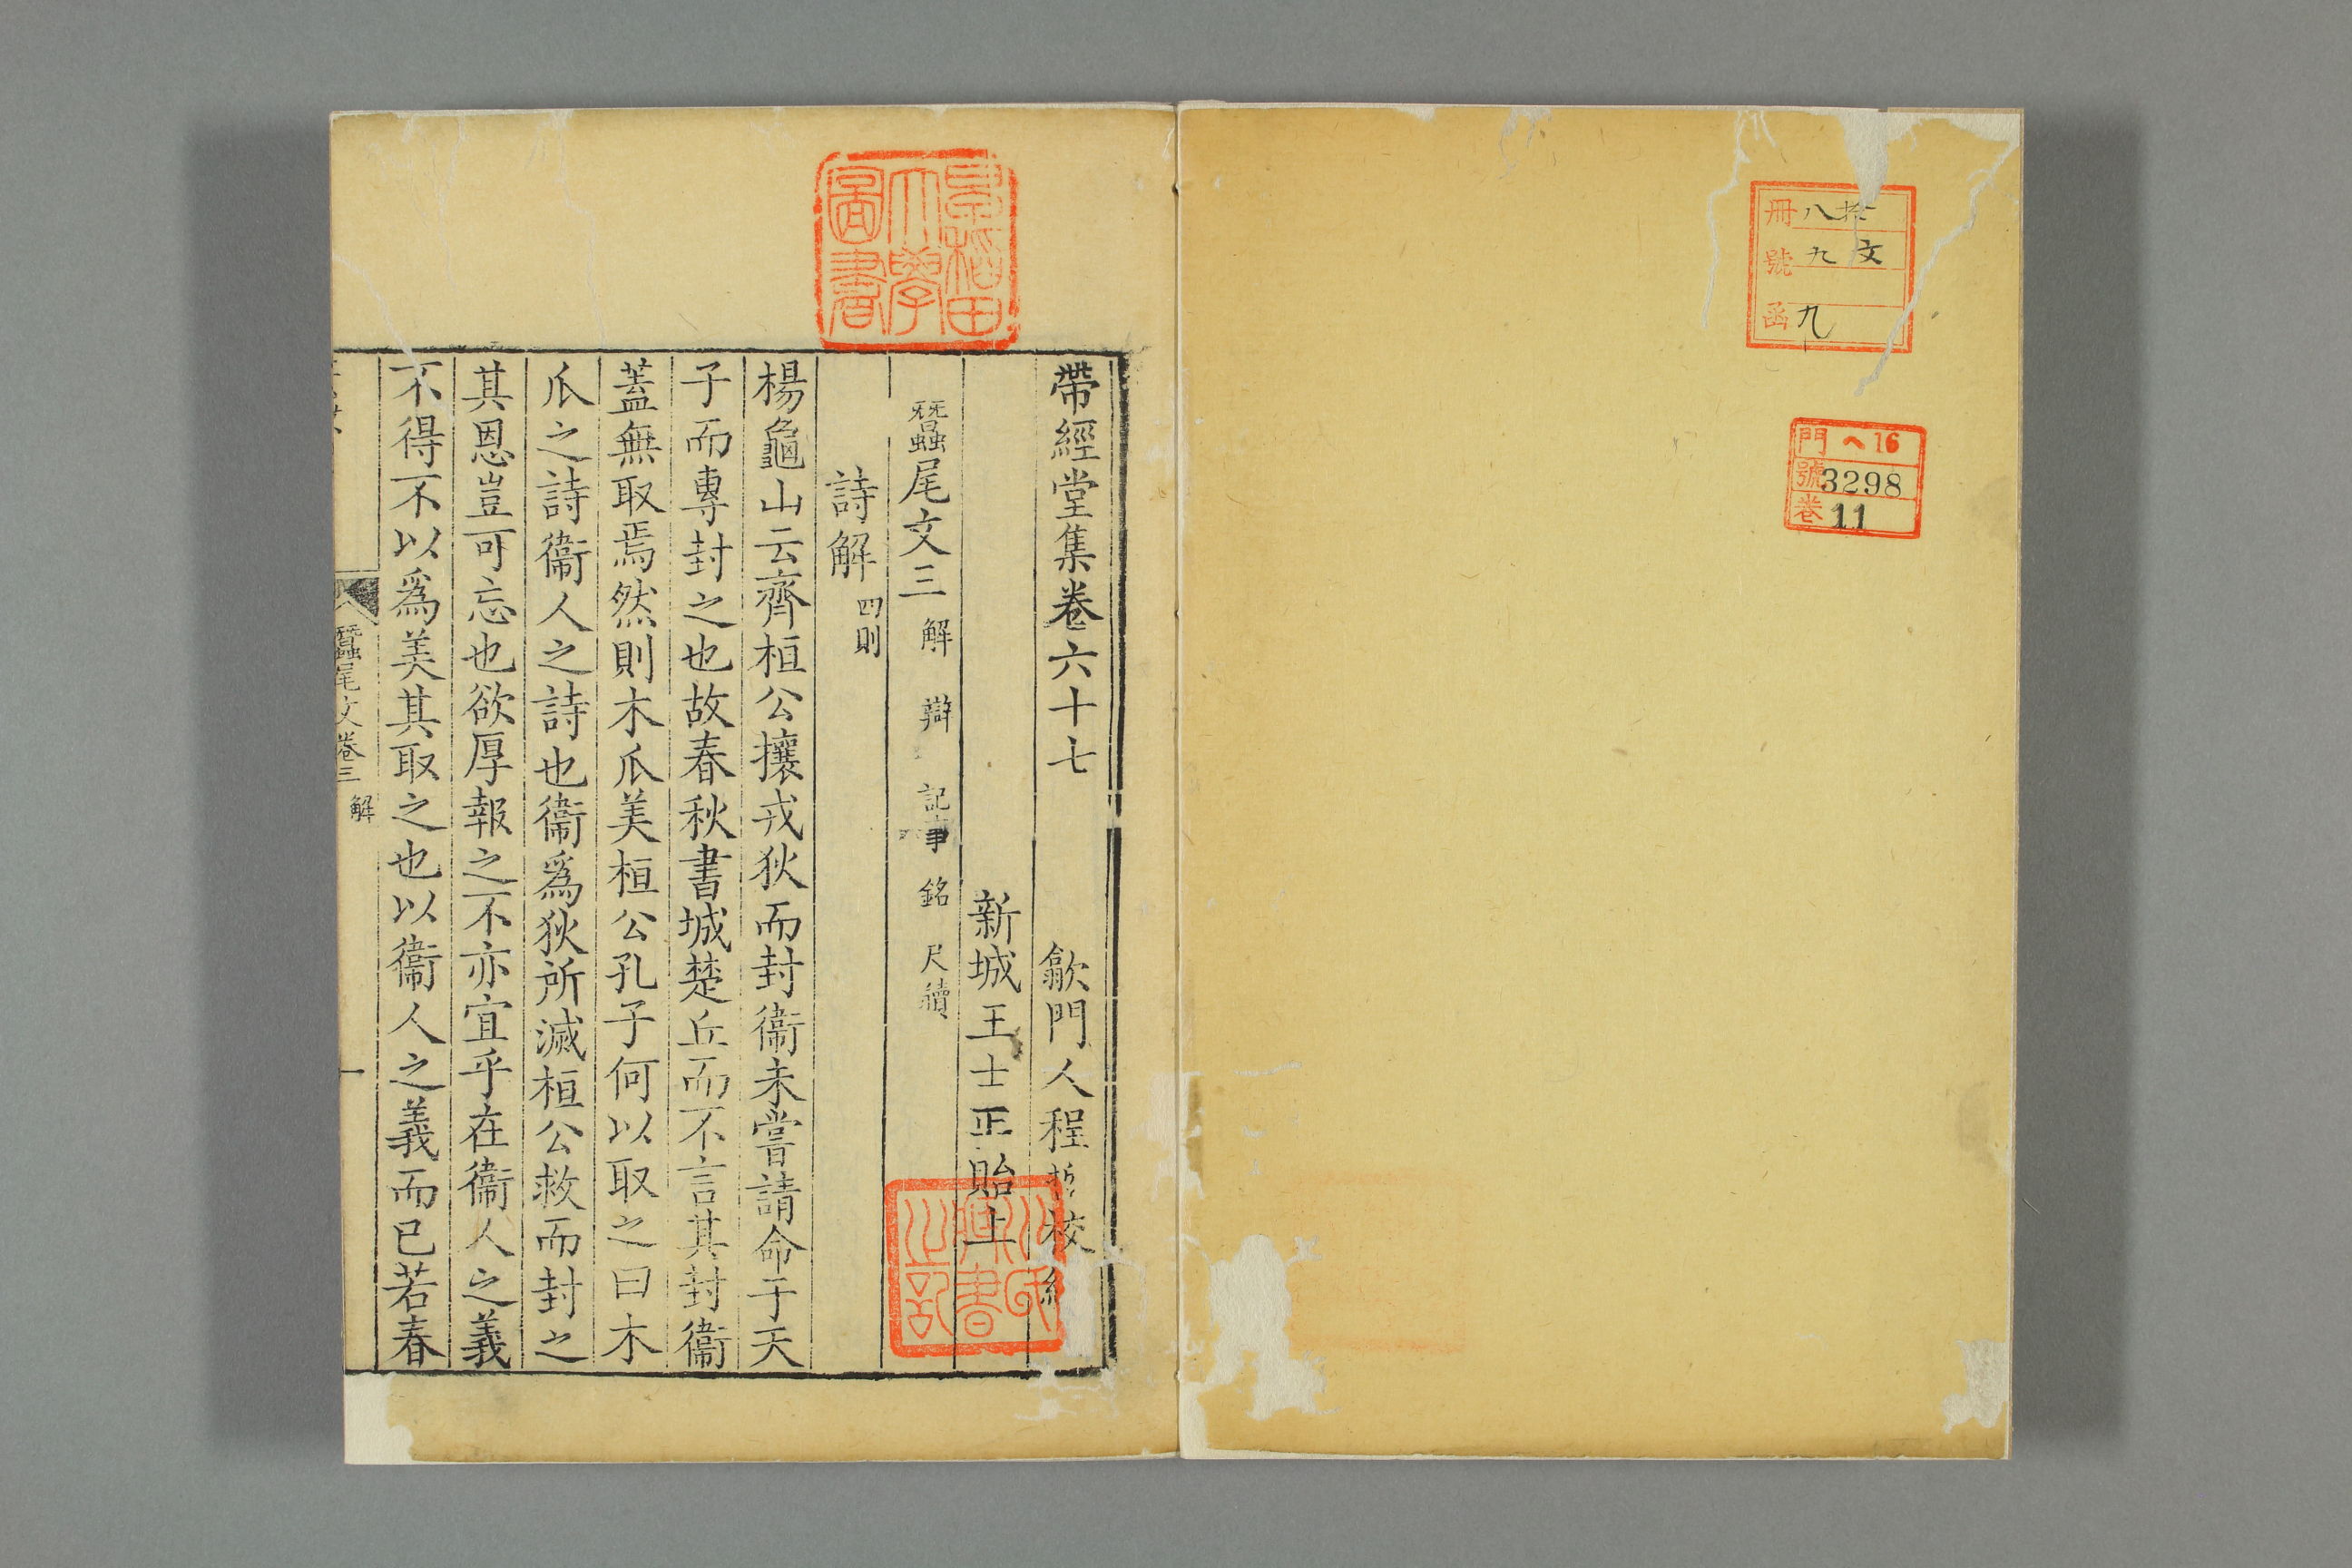 冊 八拾
號 九 文
函 九
門 ヘ16
號 3298
卷 11
早稻田
大學
圖書
帶經堂集卷六十七 歙門人程哲校
新城王士正貽上
蠶尾文三 解 辯 記事 銘 尺牘
詩解 四則
楊龜山云齊桓公攘戎狄而封衞未嘗請命于天
子而專封之也故春秋書城楚丘而不言其封衞
蓋無取焉然則木瓜美桓公孔子何以取之曰木
瓜之詩衞人之詩也衞爲狄所滅桓公救而封之
其恩豈可忘也欲厚報之不亦宜乎在衞人之義
不得不以爲美其取之也以衞人之義而已若春
蠶尾文卷三 解 一